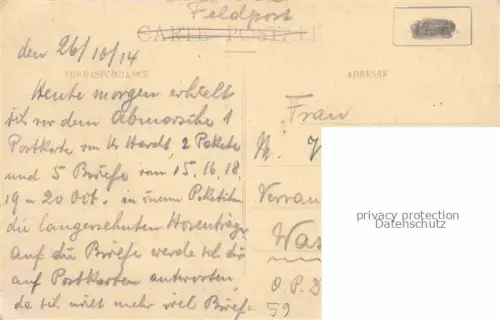 Feldpost
CARTE POSTALE
den 26/10/14
CORRESPONDANCE
ADRESSE
Heute morgen erhielt
ich vor dem Abmarsche 1
Postkarte von Hardt, 2 Pakete
und 5 Briefe vom 15, 16, 18,
19 u 20 Oct. in einem Paketchen
die langersehnten Hosenträger
auf die Briefe werde ich dir
auf Postkarten antworten,
da ich nicht mehr viel Brief=
Frau
Wa
O. P. D
59
privacy protection
Datenschutz